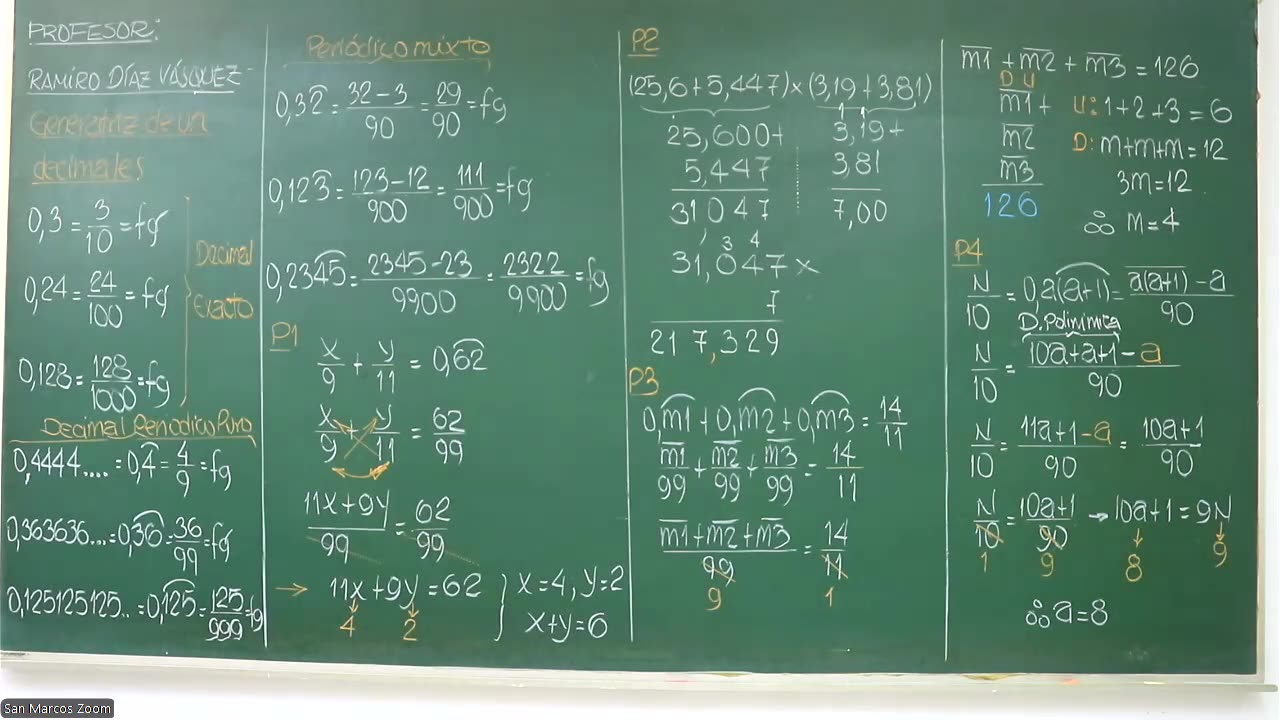 PROFESOR:
RAMIRO DÍAZ VÁSQUEZ
Generatriz de un
decimales
0,3 = 3/10 = fg
0,24 = 24/100 = fg
0,128 = 128/1000 = fg
Decimal
Exacto
Decimal Periodico Puro
0,4444.... = 0,4̑ = 4/9 = fg
0,363636... = 0,3͡6 = 36/99 = fg
0,125125125.. = 0,1͡25 = 125/999 = fg
Periódico mixto
0,32̑ = (32-3)/90 = 29/90 = fg
0,123̑ = (123-12)/900 = 111/900 = fg
0,234͡5 = (2345-23)/9900 = 2322/9900 = fg
P1
x/9 + y/11 = 0,6͡2
x/9 + y/11 = 62/99
(11x+9y)/99 = 62/99
→ 11x+9y=62
4 2
x=4, y=2
x+y=6
P2
(25,6+5,447)×(3,19+3,81)
25,600+
5,447
31,047
3,19+
3,81
7,00
3 4
31,047×
7
217,329
P3
0,m͡1+0,m͡2+0,m͡3 = 14/11
m̅1̅/99 + m̅2̅/99 + m̅3̅/99 = 14/11
(m̅1̅+m̅2̅+m̅3̅)/99 = 14/11
9 1
m̅1̅+m̅2̅+m̅3̅=126
D U
m̅1̅+
m̅2̅
m̅3̅
126
U: 1+2+3=6
D: m+m+m=12
3m=12
∴ m=4
P4
N/10 = 0,a(a+1) = (a(a+1)-a)/90
D.Polinímica
N/10 = (10a+a+1-a)/90
N/10 = (11a+1-a)/90 = (10a+1)/90
N/10 = (10a+1)/90 → 10a+1=9N
1 9 8 9
∴ a=8
San Marcos Zoom